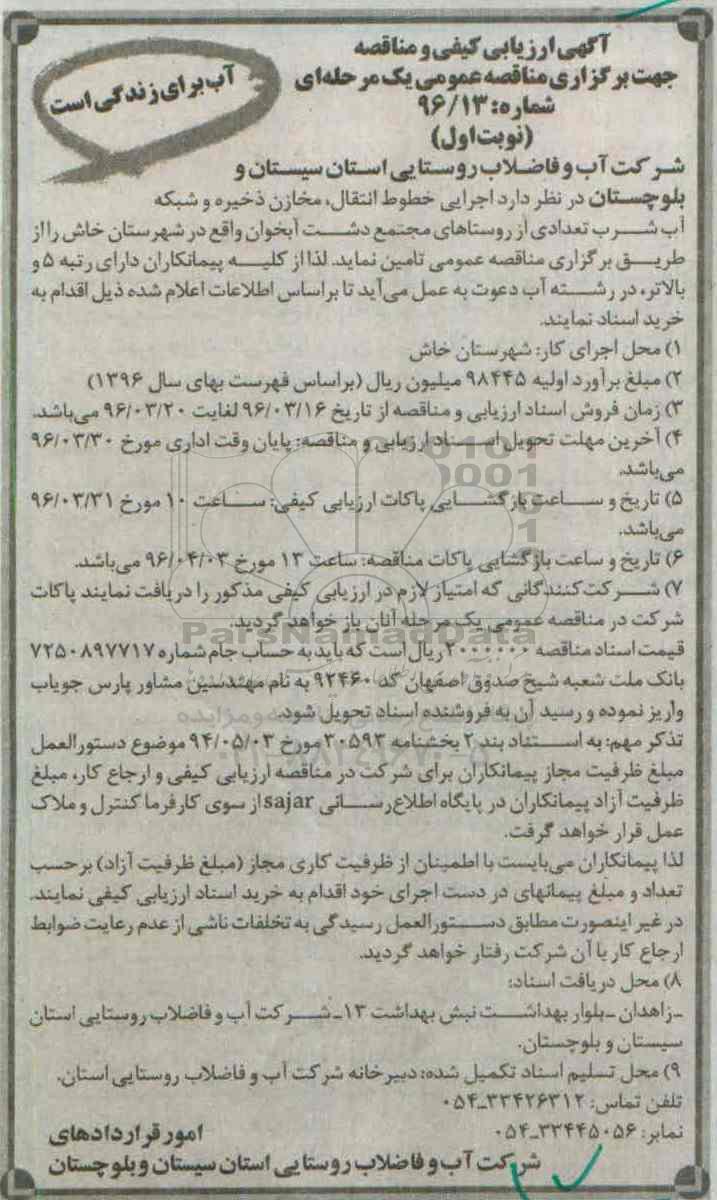 آگهی ارزیابی کیفی و مناقصه
جهت برگزاری مناقصه عمومی یک مرحله‌ای
شماره: ۹۶/۱۳
(نوبت اول)
آب برای زندگی است
شرکت آب و فاضلاب روستایی استان سیستان و
بلوچستان در نظر دارد اجرایی خطوط انتقال، مخازن ذخیره و شبکه
آب شرب تعدادی از روستاهای مجتمع دشت آبخوان واقع در شهرستان خاش را از
طریق برگزاری مناقصه عمومی تامین نماید. لذا از کلیه پیمانکاران دارای رتبه ۵ و
بالاتر، در رشته آب دعوت به عمل می‌آید تا براساس اطلاعات اعلام شده ذیل اقدام به
خرید اسناد نمایند.
۱) محل اجرای کار: شهرستان خاش
۲) مبلغ برآورد اولیه ۹۸۴۴۵ میلیون ریال (براساس فهرست بهای سال ۱۳۹۶)
۳) زمان فروش اسناد ارزیابی و مناقصه از تاریخ ۹۶/۰۳/۱۶ لغایت ۹۶/۰۳/۲۰ می‌باشد.
۴) آخرین مهلت تحویل اسناد ارزیابی و مناقصه: پایان وقت اداری مورخ ۹۶/۰۳/۳۰
می‌باشد.
۵) تاریخ و ساعت بازگشایی پاکات ارزیابی کیفی: ساعت ۱۰ مورخ ۹۶/۰۳/۳۱
می‌باشد.
۶) تاریخ و ساعت بازگشایی پاکات مناقصه: ساعت ۱۳ مورخ ۹۶/۰۴/۰۳ می‌باشد.
۷) شرکت‌کنندگانی که امتیاز لازم در ارزیابی کیفی مذکور را دریافت نمایند پاکات
شرکت در مناقصه عمومی یک مرحله آنان باز خواهد گردید.
ParsNamadData
قیمت اسناد مناقصه ۲۰۰۰۰۰۰ ریال است که باید به حساب جام شماره ۷۲۵۰۸۹۷۷۱۷
بانک ملت شعبه شیخ صدوق اصفهان کد ۹۲۴۶۰ به نام مهندسین مشاور پارس جویاب
واریز نموده و رسید آن به فروشنده اسناد تحویل شود.
تذکر مهم: به استناد بند ۲ بخشنامه ۳۰۵۹۳ مورخ ۹۴/۰۵/۰۳ موضوع دستورالعمل
مبلغ ظرفیت مجاز پیمانکاران برای شرکت در مناقصه ارزیابی کیفی و ارجاع کار، مبلغ
ظرفیت آزاد پیمانکاران در پایگاه اطلاع‌رسانی sajar از سوی کارفرما کنترل و ملاک
عمل قرار خواهد گرفت.
لذا پیمانکاران می‌بایست با اطمینان از ظرفیت کاری مجاز (مبلغ ظرفیت آزاد) برحسب
تعداد و مبلغ پیمانهای در دست اجرای خود اقدام به خرید اسناد ارزیابی کیفی نمایند.
در غیر اینصورت مطابق دستورالعمل رسیدگی به تخلفات ناشی از عدم رعایت ضوابط
ارجاع کار با آن شرکت رفتار خواهد گردید.
۸) محل دریافت اسناد:
ـ زاهدان ـ بلوار بهداشت نبش بهداشت ۱۳ ـ شرکت آب و فاضلاب روستایی استان
سیستان و بلوچستان.
۹) محل تسلیم اسناد تکمیل شده: دبیرخانه شرکت آب و فاضلاب روستایی استان.
تلفن تماس: ۳۳۴۲۶۳۱۲ـ۰۵۴
نمابر: ۳۳۴۴۵۰۵۶ـ۰۵۴
امور قراردادهای
شرکت آب و فاضلاب روستایی استان سیستان و بلوچستان